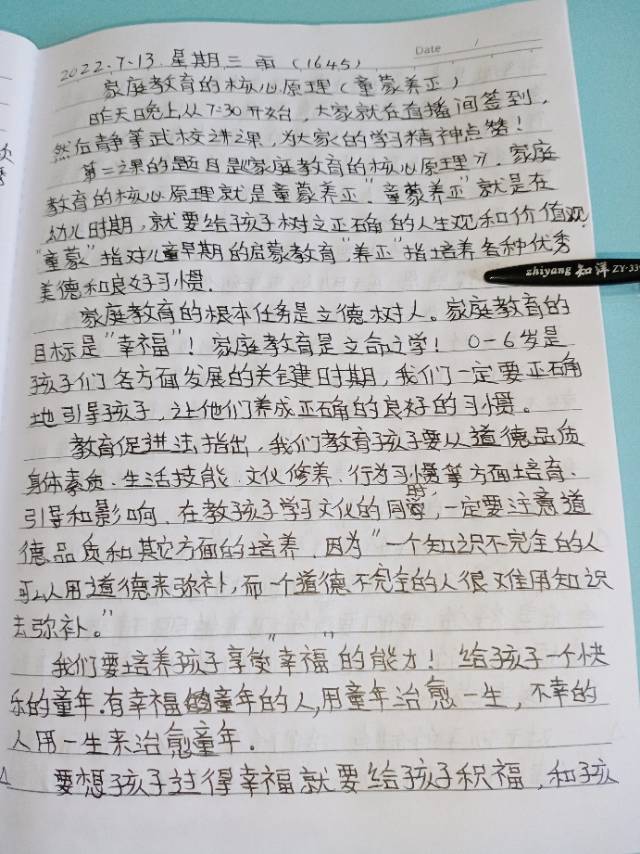 Date
2022.7.13.星期三 雨 (1645)
家庭教育的核心原理(童蒙养正)
昨天晚上从7:30开始,大家就在直播间签到,
然后静等武校讲课,为大家的学习精神点赞!
第二课的题目是《家庭教育的核心原理》,家庭
教育的核心原理就是童蒙养正"童蒙养正"就是在
幼儿时期,就要给孩子树立正确的人生观和价值观
"童蒙"指对儿童早期的启蒙教育"养正"指培养各种优秀
美德和良好习惯.
zhiyang 知洋 ZY-33
家庭教育的根本任务是立德树人。家庭教育的
目标是"幸福"!家庭教育是立命之学!0-6岁是
孩子们各方面发展的关键时期,我们一定要正确
地引导孩子,让他们养成正确的良好的习惯。
教育促进法指出,我们教育孩子要从道德品质
身体素质、生活技能、文化修养、行为习惯等方面培育、
引导和影响,在教孩子学习文化的同时,一定要注意道
德品质和其它方面的培养,因为"一个知识不完全的人
可以用道德来弥补,而一个道德不完全的人很难用知识
去弥补。"
我们要培养孩子享受"幸福"的能力!给孩子一个快
乐的童年.有幸福的童年的人,用童年治愈一生,不幸的
人用一生来治愈童年.
要想孩子过得幸福就要给孩子积福,和孩